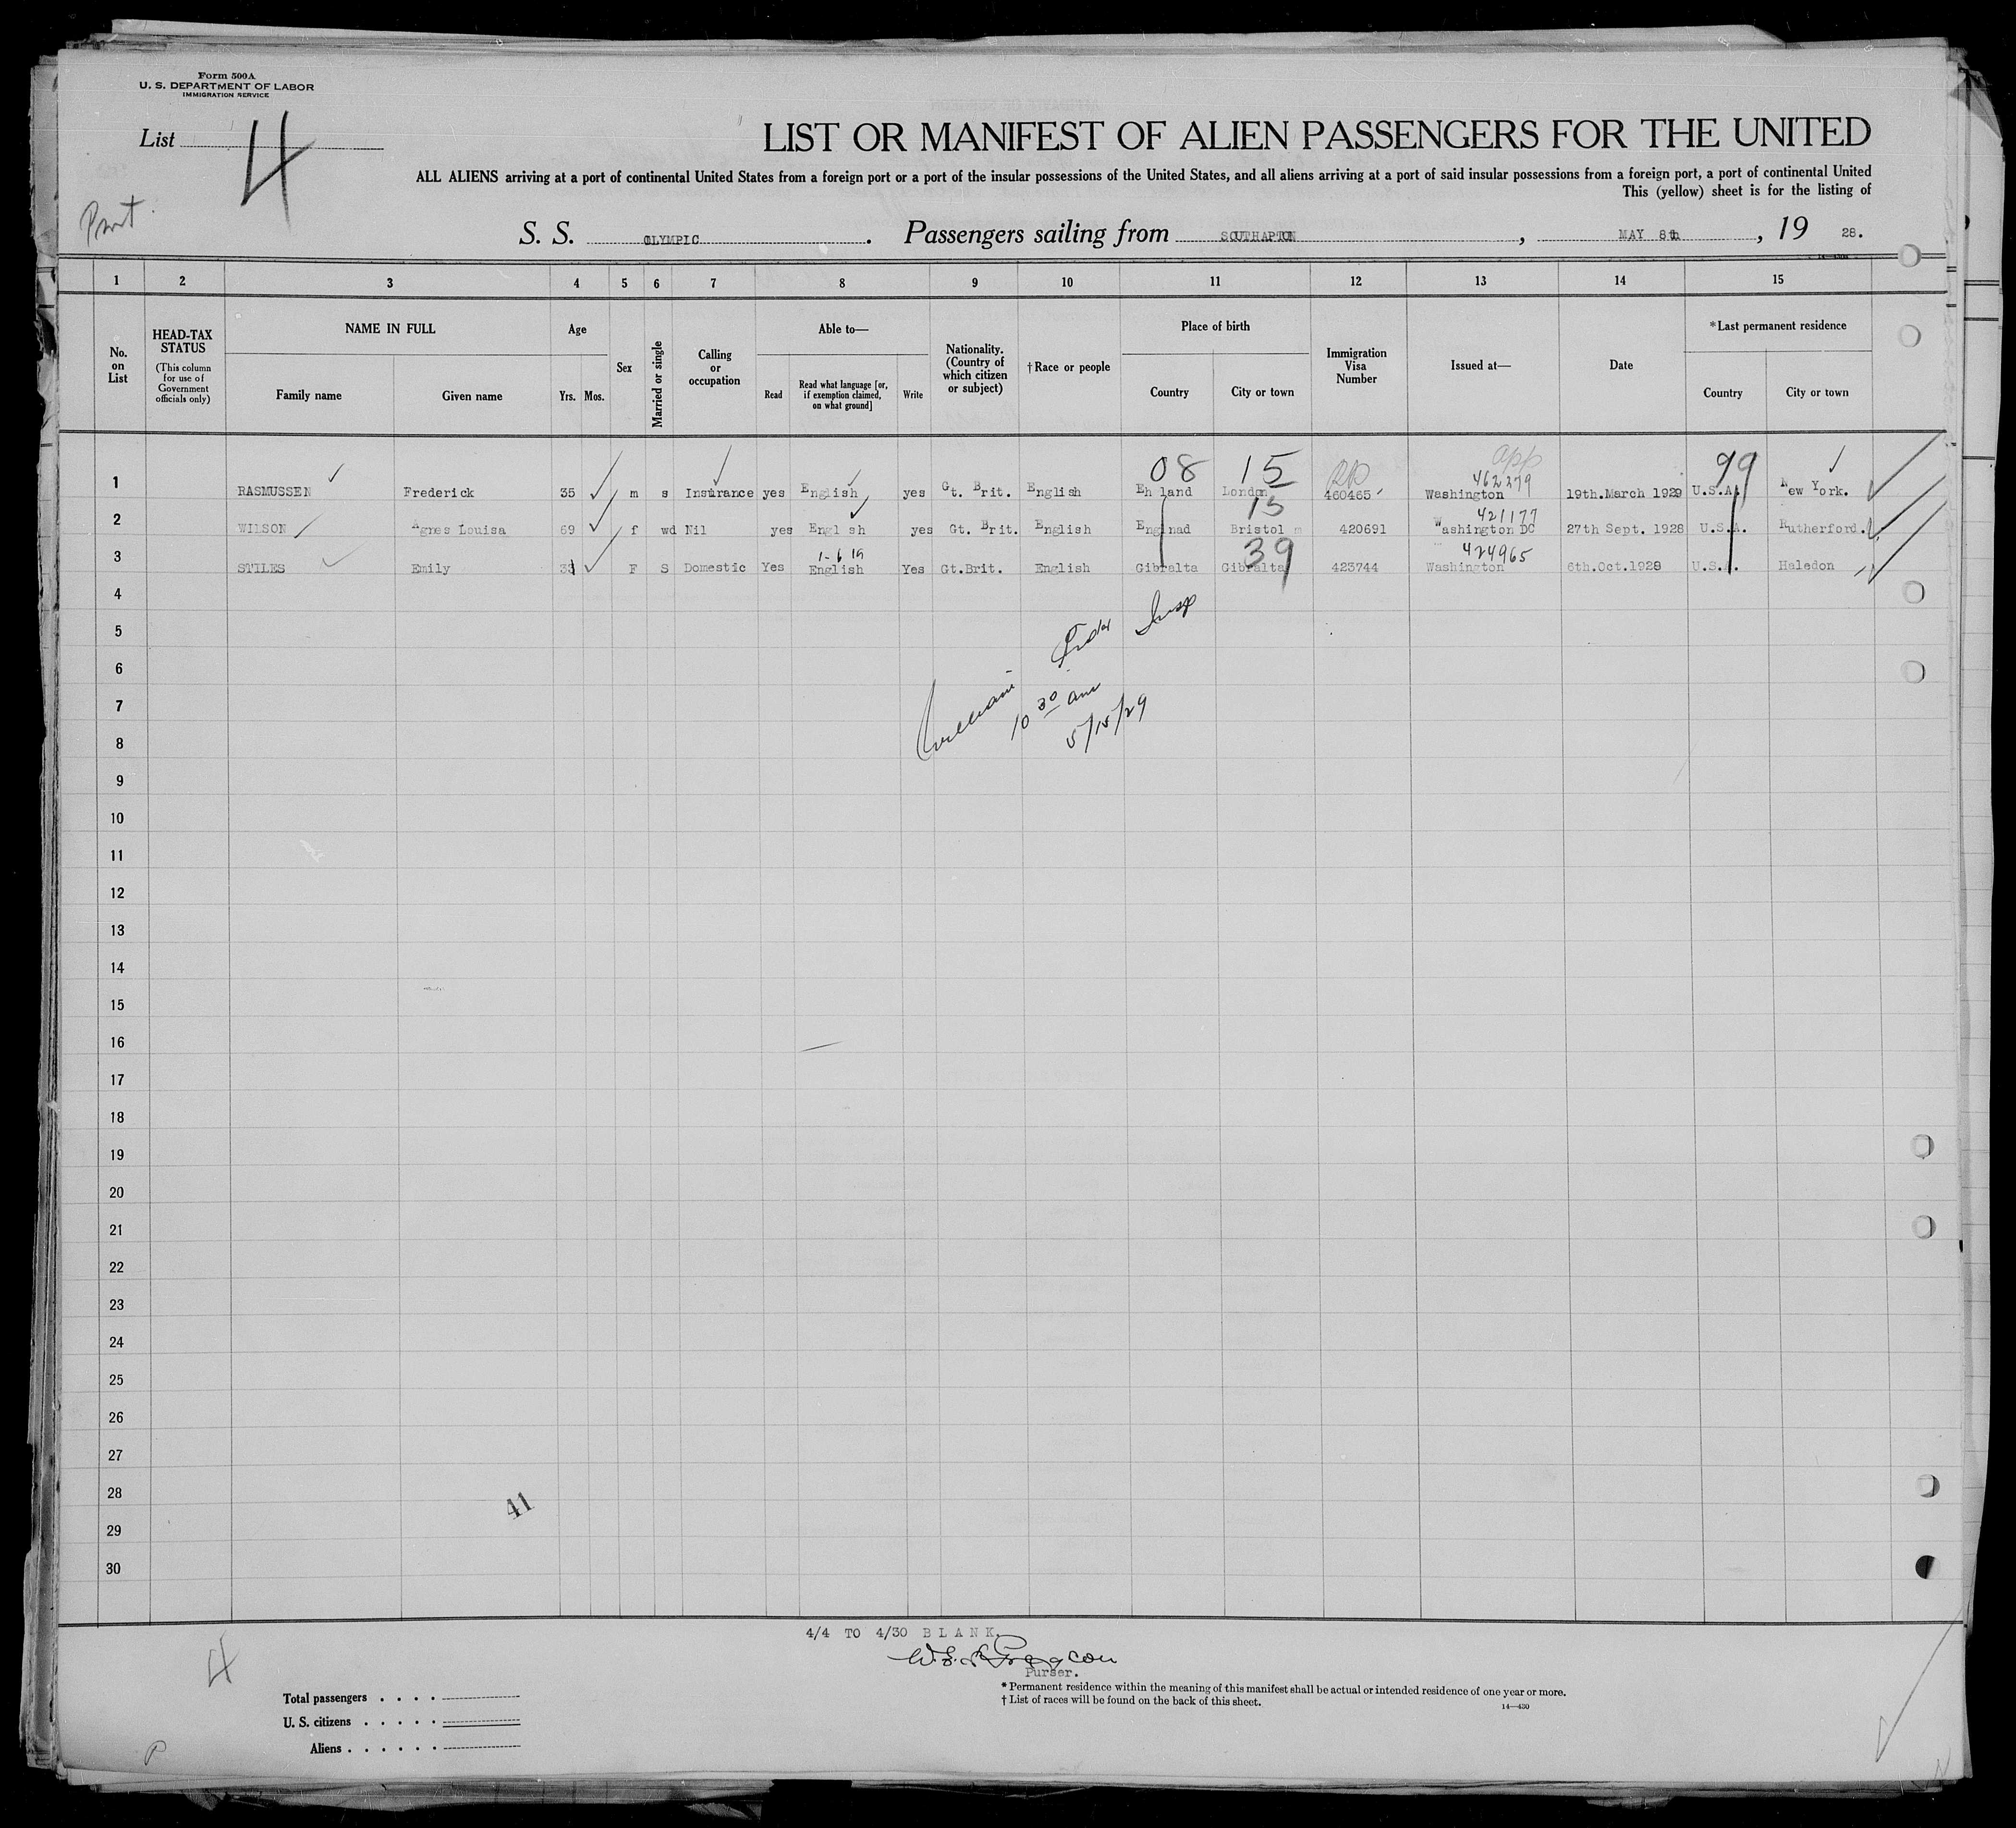 Form 500A
U. S. DEPARTMENT OF LABOR
IMMIGRATION SERVICE
List 4
LIST OR MANIFEST OF ALIEN PASSENGERS FOR THE UNITED
ALL ALIENS arriving at a port of continental United States from a foreign port or a port of the insular possessions of the United States, and all aliens arriving at a port of said insular possessions from a foreign port, a port of continental United
This (yellow) sheet is for the listing of
S. S. OLYMPIC. Passengers sailing from SOUTHAPTON, MAY 8th, 19 28.
1 2 3 4 5 6 7 8 9 10 11 12 13 14 15
No. on List
HEAD-TAX STATUS
(This column for use of Government officials only)
NAME IN FULL
Family name Given name
Age
Yrs. Mos.
Sex
Married or single
Calling or occupation
Able to—
Read
Read what language [or, if exemption claimed, on what ground]
Write
Nationality. (Country of which citizen or subject)
†Race or people
Place of birth
Country City or town
Immigration Visa Number
Issued at—
Date
*Last permanent residence
Country City or town
08 15 RP app 462279 99
1 RASMUSSEN Frederick 35 m s Insurance yes English yes Gt. Brit. English Eh land London 460465 Washington 19th.March 1929 U.S.A. New York.
15 421177
2 WILSON Agnes Louisa 69 f wd Nil yes Engl sh yes Gt. Brit. English Englnad Bristol 420691 Washington DC 27th Sept. 1928 U.S.A. Rutherford.
1-6 19 39 424965
3 STILES Emily 33 F S Domestic Yes English Yes Gt.Brit. English Gibralta Gibralta 423744 Washington 6th.Oct.1928 U.S.A. Haledon
4
5
6
7
8
Insp
10 30 am
5/15/29
9
10
11
12
13
14
15
16
17
18
19
20
21
22
23
24
25
26
27
28
41
29
30
4/4 TO 4/30 BLANK.
4
Purser.
Total passengers . . . .
U. S. citizens . . . . .
Aliens . . . . . .
* Permanent residence within the meaning of this manifest shall be actual or intended residence of one year or more.
† List of races will be found on the back of this sheet.
14—430
P